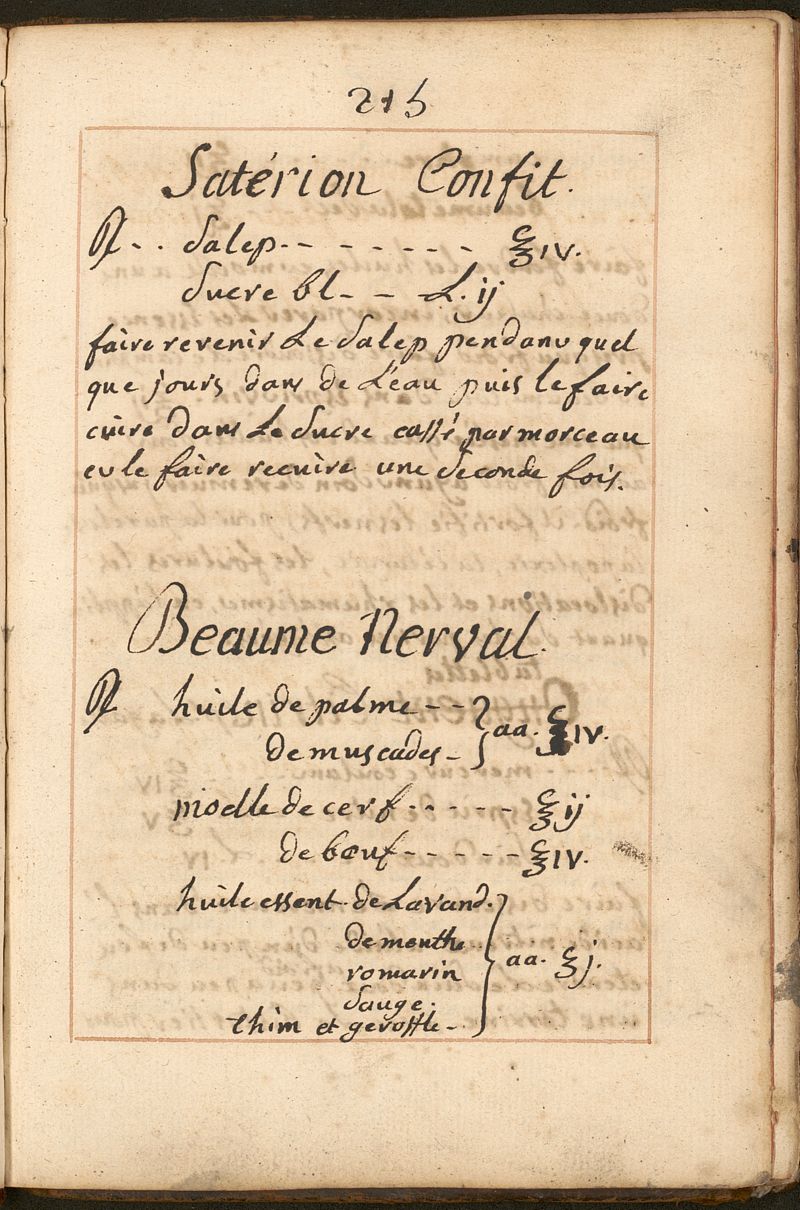 215
Satérion Confit.
℞ - . Salep - - - - - - - ℥ IV.
Sucre bl - - L. ij
faire revenir Le Salep pendanv quel
que jours dans de L'eau puis le faire
cuire dans Le Sucre cassé par morceau
ev le faire recuire une Seconde fois.
Beaume Nerval.
℞ huile de palme - - } aa. ℥ IV.
de muscades -
moelle de cerf - - - - - ℥ ij
de bœuf - - - - - ℥ IV.
huile essent. de Lavand. } aa. ℥ j.
de menthe
romarin
Sauge.
thim et geroffle -